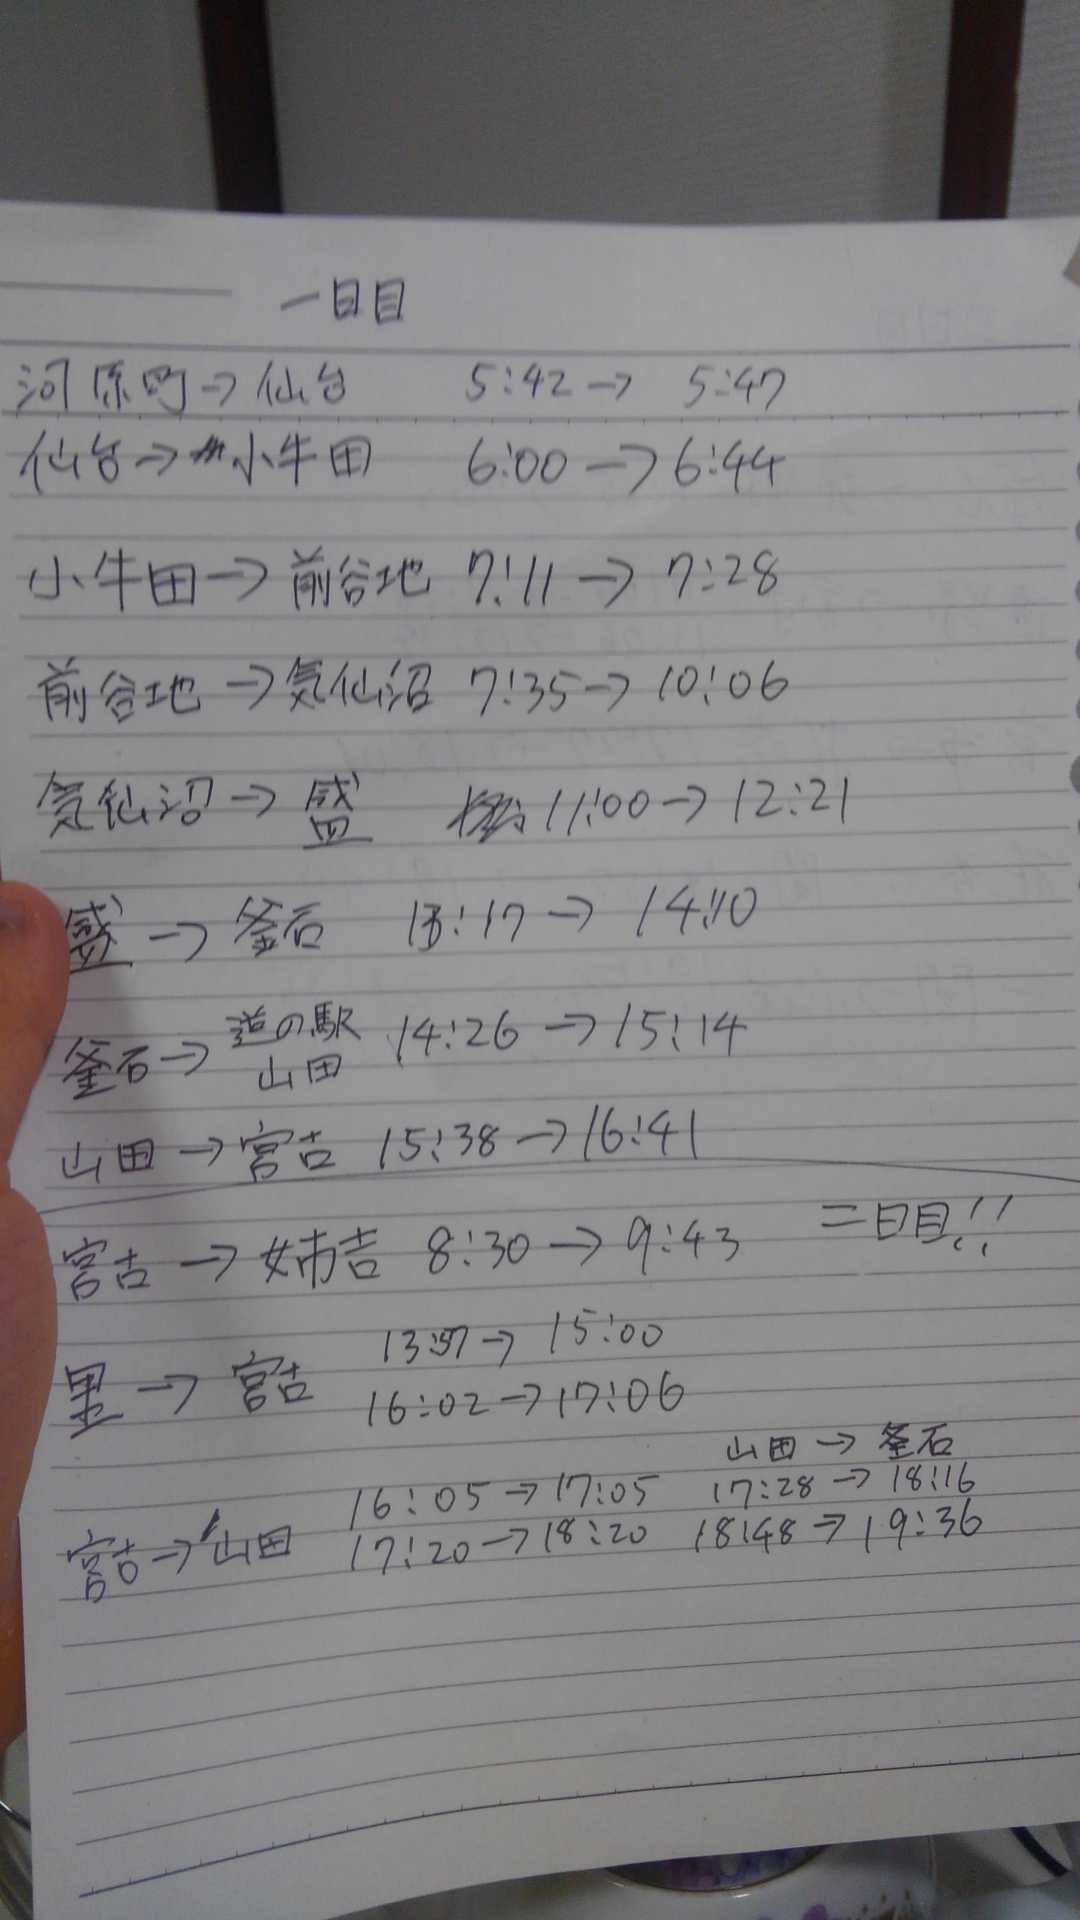 一日目
河原町→仙台 5:42→5:47
仙台→小牛田 6:00→6:44
小牛田→前谷地 7:11→7:28
前谷地→気仙沼 7:35→10:06
気仙沼→盛 11:00→12:21
盛→釜石 13:17→14:10
釜石→道の駅山田 14:26→15:14
山田→宮古 15:38→16:41
二日目!!
宮古→姉吉 8:30→9:43
里→宮古 13:57→15:00
16:02→17:06
山田→釜石
宮古→山田 16:05→17:05 17:28→18:16
17:20→18:20 18:48→19:36